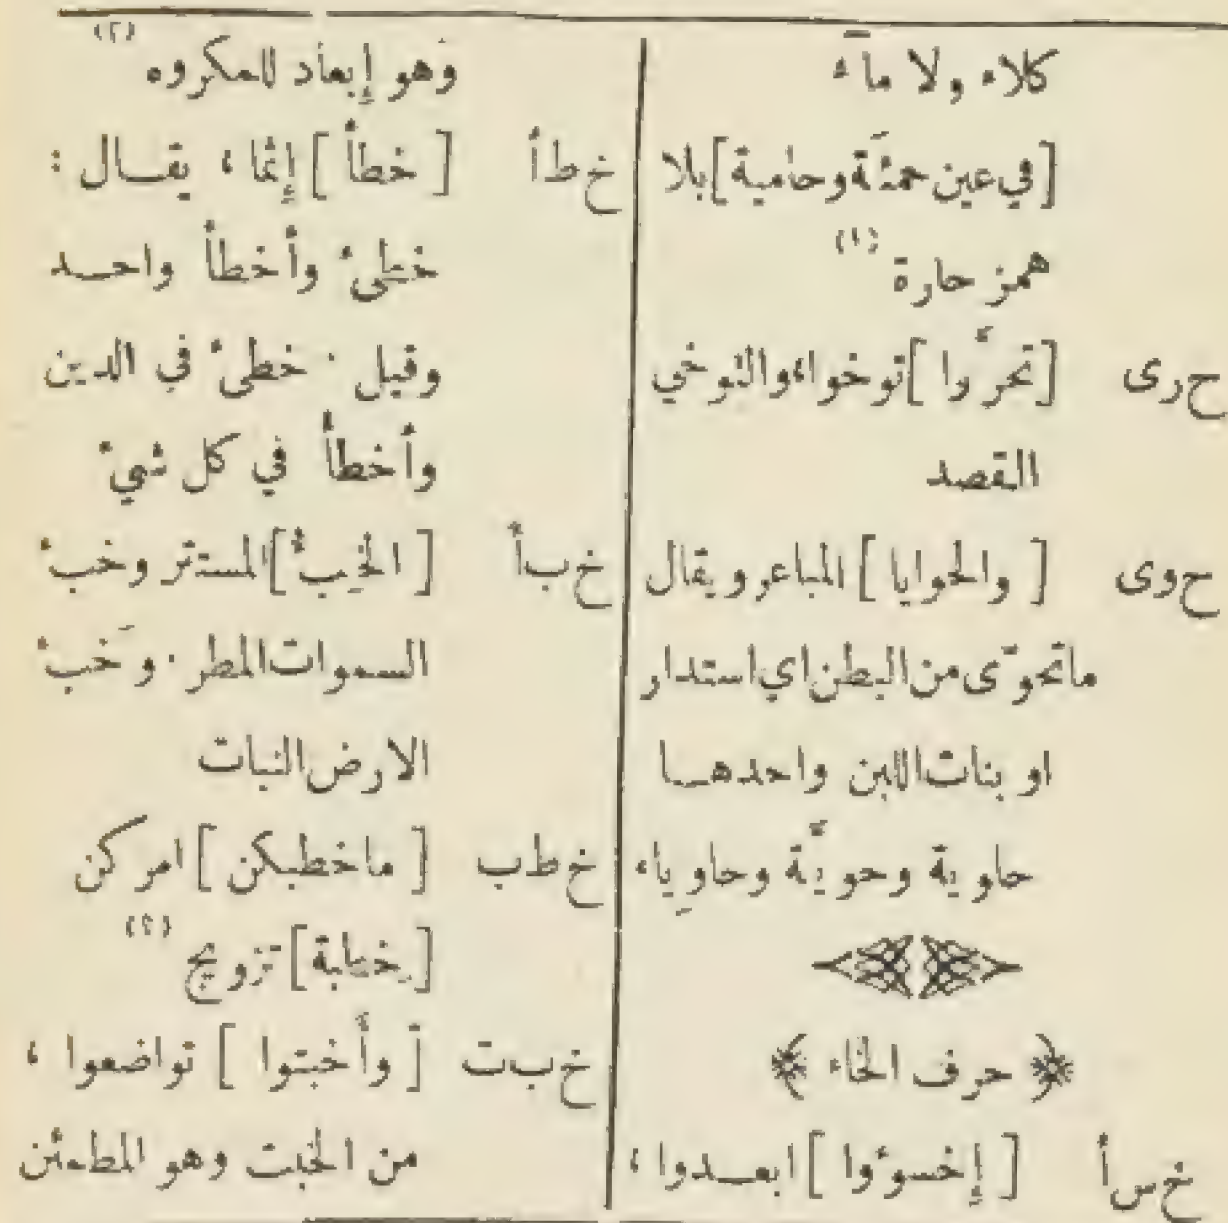 كلاء ولا مآء
[في عين حمئَة وحامية] بلا
همز حارة (١)
ح رى [تحرَّوا] توخوا، والتوخي
القصد
ح وى [والحوايا] المباعر ويقال
ما تحوَّى من البطن اي استدار
او بنات اللبن واحدهـا
حاوية وحويَّة وحاوِياء
﴿ حرف الخاء ﴾
خ س أ [إخسوءوا] ابعـدوا،
وهو إبعاد للمكروه (٢)
خ ط أ [خطأ] إثما، يقـال :
خطىء وأخطأ واحـد
وقيل . خطىء في الدين
وأخطأ في كل شيء
خ ب أ [الخبءُ] المستتر وخبء
السموات المطر . وخَبء
الارض النبات
خ ط ب [ما خطبكن] امركن
[خِطبة] تزويج (٢)
خ ب ت [وأَخبتوا] تواضعوا ،
من الخبت وهو المطمئن